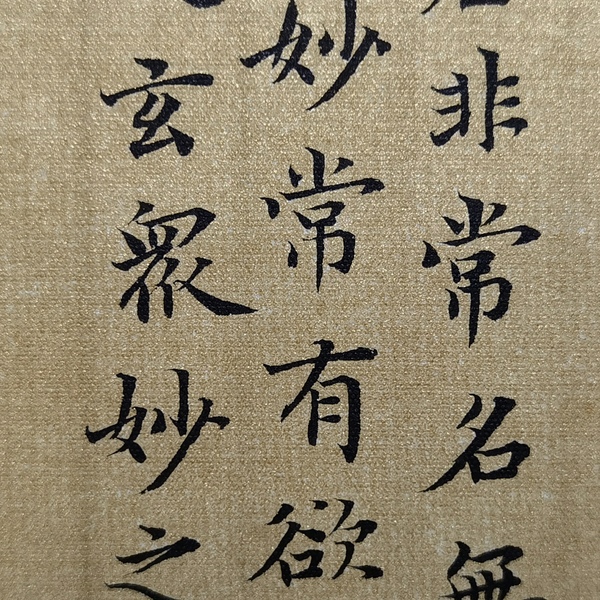 非常名無
妙常有欲
玄眾妙之